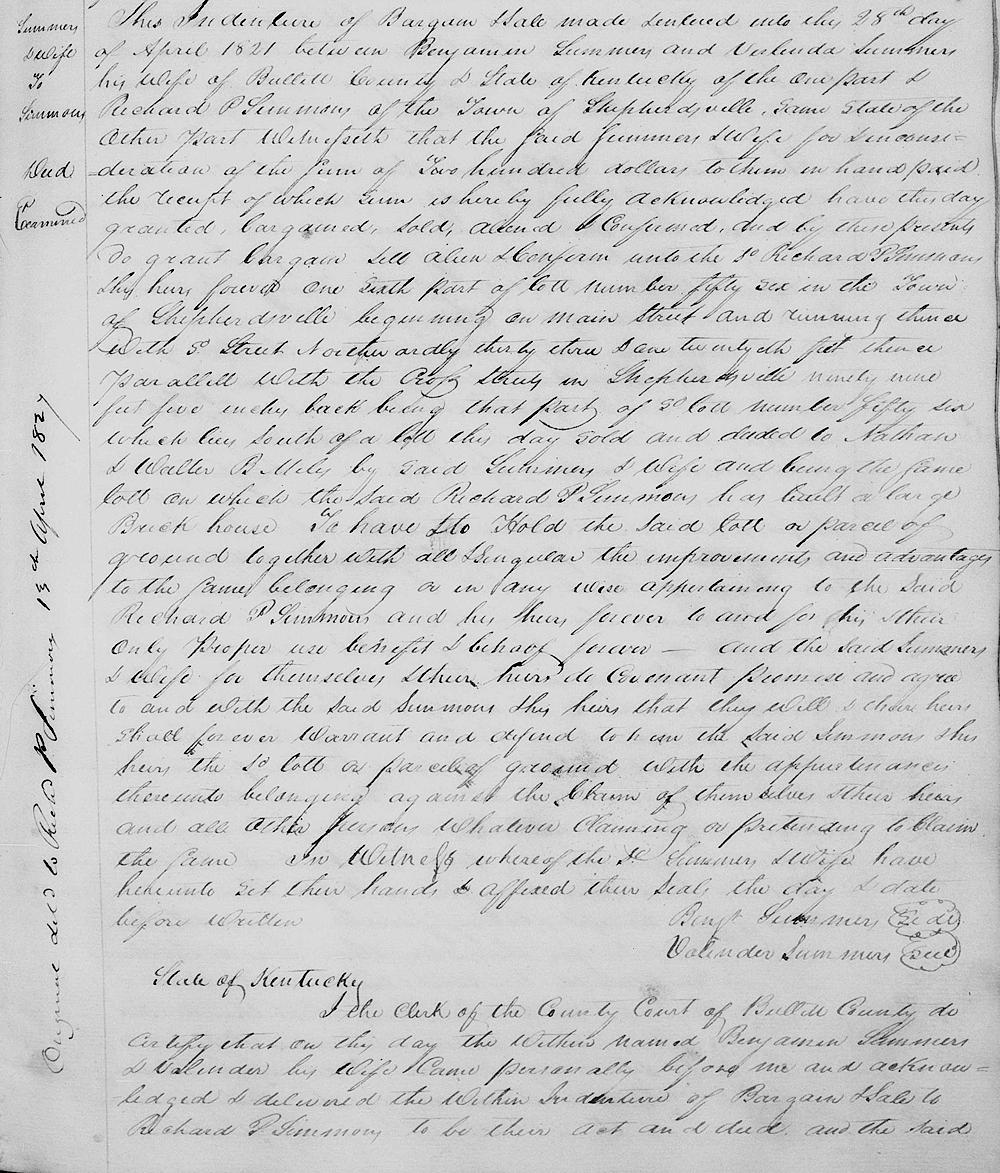 Summers
& Wife
To
Simmons
Deed
Examined
This Indenture of Bargain & Sale made & entered into this 28th day
of April 1821 between Benjamin Summers and Verlinda Summers
his Wife of Bullitt County & State of Kentucky of the One part &
Richard P Simmons of the Town of Shepherdsville, same State of the
Other Part Witnesseth that the said Summers & Wife for & in consi=
=deration of the sum of Two hundred dollars to them in hand paid
the receipt of which sum is hereby fully acknowledged have this day
granted, bargained, sold, aliened & Confirmed, and by these presents
do grant bargain sell alien & Confirm unto the sd Richard P Simmons
& his heirs forever One sixth part of lott number fifty six in the Town
of Shepherdsville beginning on main Street and running thence
With sd Street Northwardly thirty three & one twentyeth feet thence
Parallell With the Cross Streets in Shepherdsville ninety nine
feet five inches back being that part of sd lott number fifty six
which lies South of a lott this day sold and deeded to Nathan
& Walter B. Miles by said Summers & Wife and being the same
lott on which the said Richard P Simmons has built a large
Brick house To have & to Hold the said lott or parcel of
ground together with all & Singular the improvements and advantages
to the same belonging or in any wise appertaining to the said
Richard P Simmons and his heirs forever to and for his & their
Only Proper use benefit & behoof forever — and the said Summers
& Wife for themselves & their heirs do Covenant promise and agree
to and with the said Simmons & his heirs that they will & their heirs
shall forever Warrant and defend to him the said Simmons & his
heirs the sd lott or parcel of ground with the appurtenances
thereunto belonging against the Claim of themselves & their heirs
and all other persons whatever Claiming or pretending to Claim
the same In Witness whereof the sd Summers & Wife have
hereunto set their hands & affixed their seals the day & date
before written
Benjn Summers Seal
Valender Summers Seal
State of Kentucky
I the Clerk of the County Court of Bullitt County do
Certify that on this day the Within named Benjamin Summers
& Valender his Wife Came personally before me and acknow=
ledged & delivered the Within Indenture of Bargain & Sale to
Richard P Simmons to be their act and deed. and the said
Original deld to Richd P Simmons 13th April 1827